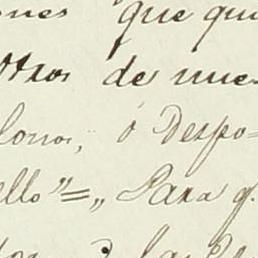 ones que qui
otros de nue-
lonos, ó Despo=
ello"=„ Para q.